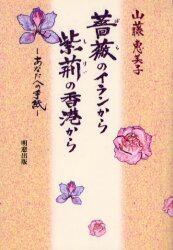 山藤惠美子
薔薇のイランから
ばら
紫荊の香港から
―あなたへの手紙―
明窓出版